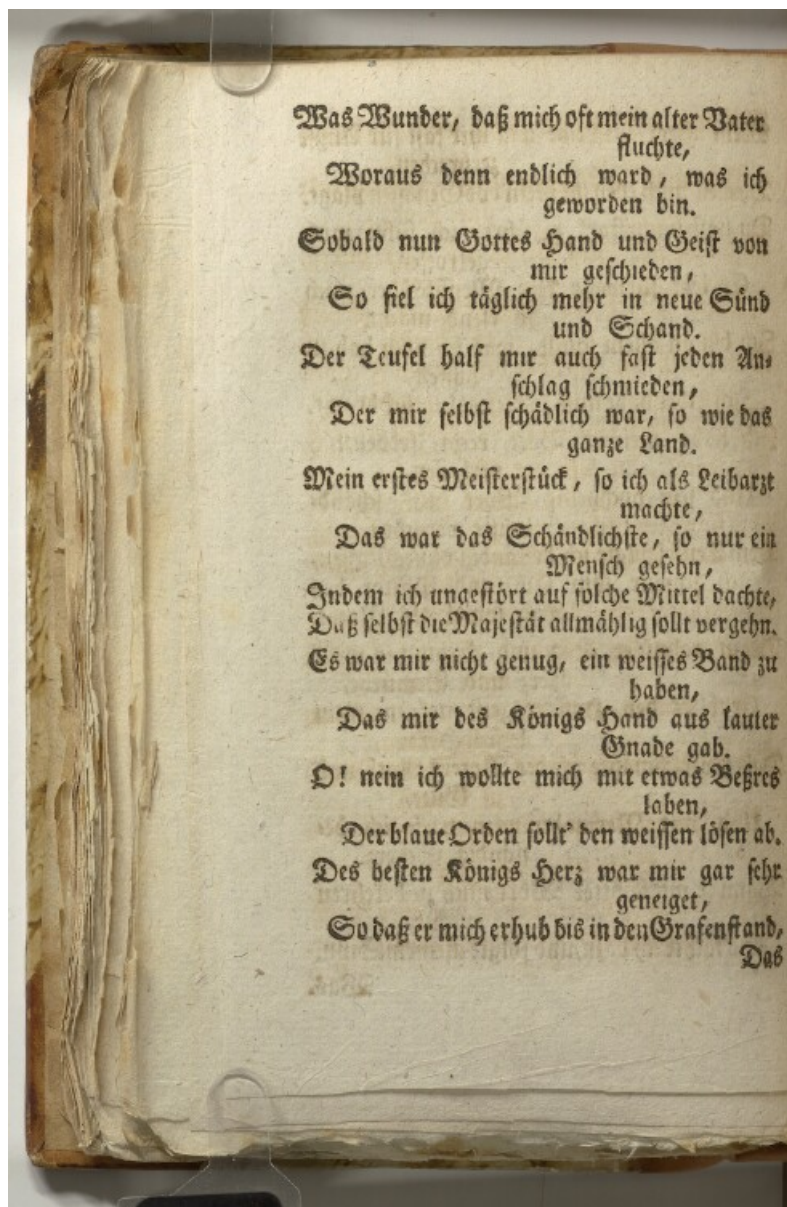 Was Wunder, daß mich oft mein alter Vater
fluchte,
Woraus denn endlich ward, was ich
geworden bin.
Sobald nun Gottes Hand und Geist von
mir geschieden,
So fiel ich täglich mehr in neue Sünd
und Schand.
Der Teufel half mir auch fast jeden An-
schlag schmieden,
Der mir selbst schädlich war, so wie das
ganze Land.
Mein erstes Meisterstück, so ich als Leibarzt
machte,
Das war das Schändlichste, so nur ein
Mensch gesehn,
Indem ich ungestört auf solche Mittel dachte,
Daß selbst die Majestät allmählig sollt vergehn.
Es war mir nicht genug, ein weisses Band zu
haben,
Das mir des Königs Hand aus lauter
Gnade gab.
O! nein ich wollte mich mit etwas Beßres
laben,
Der blaue Orden sollt' den weissen lösen ab.
Des besten Königs Herz war mir gar sehr
geneiget,
So daß er mich erhub bis in den Grafenstand,
Das